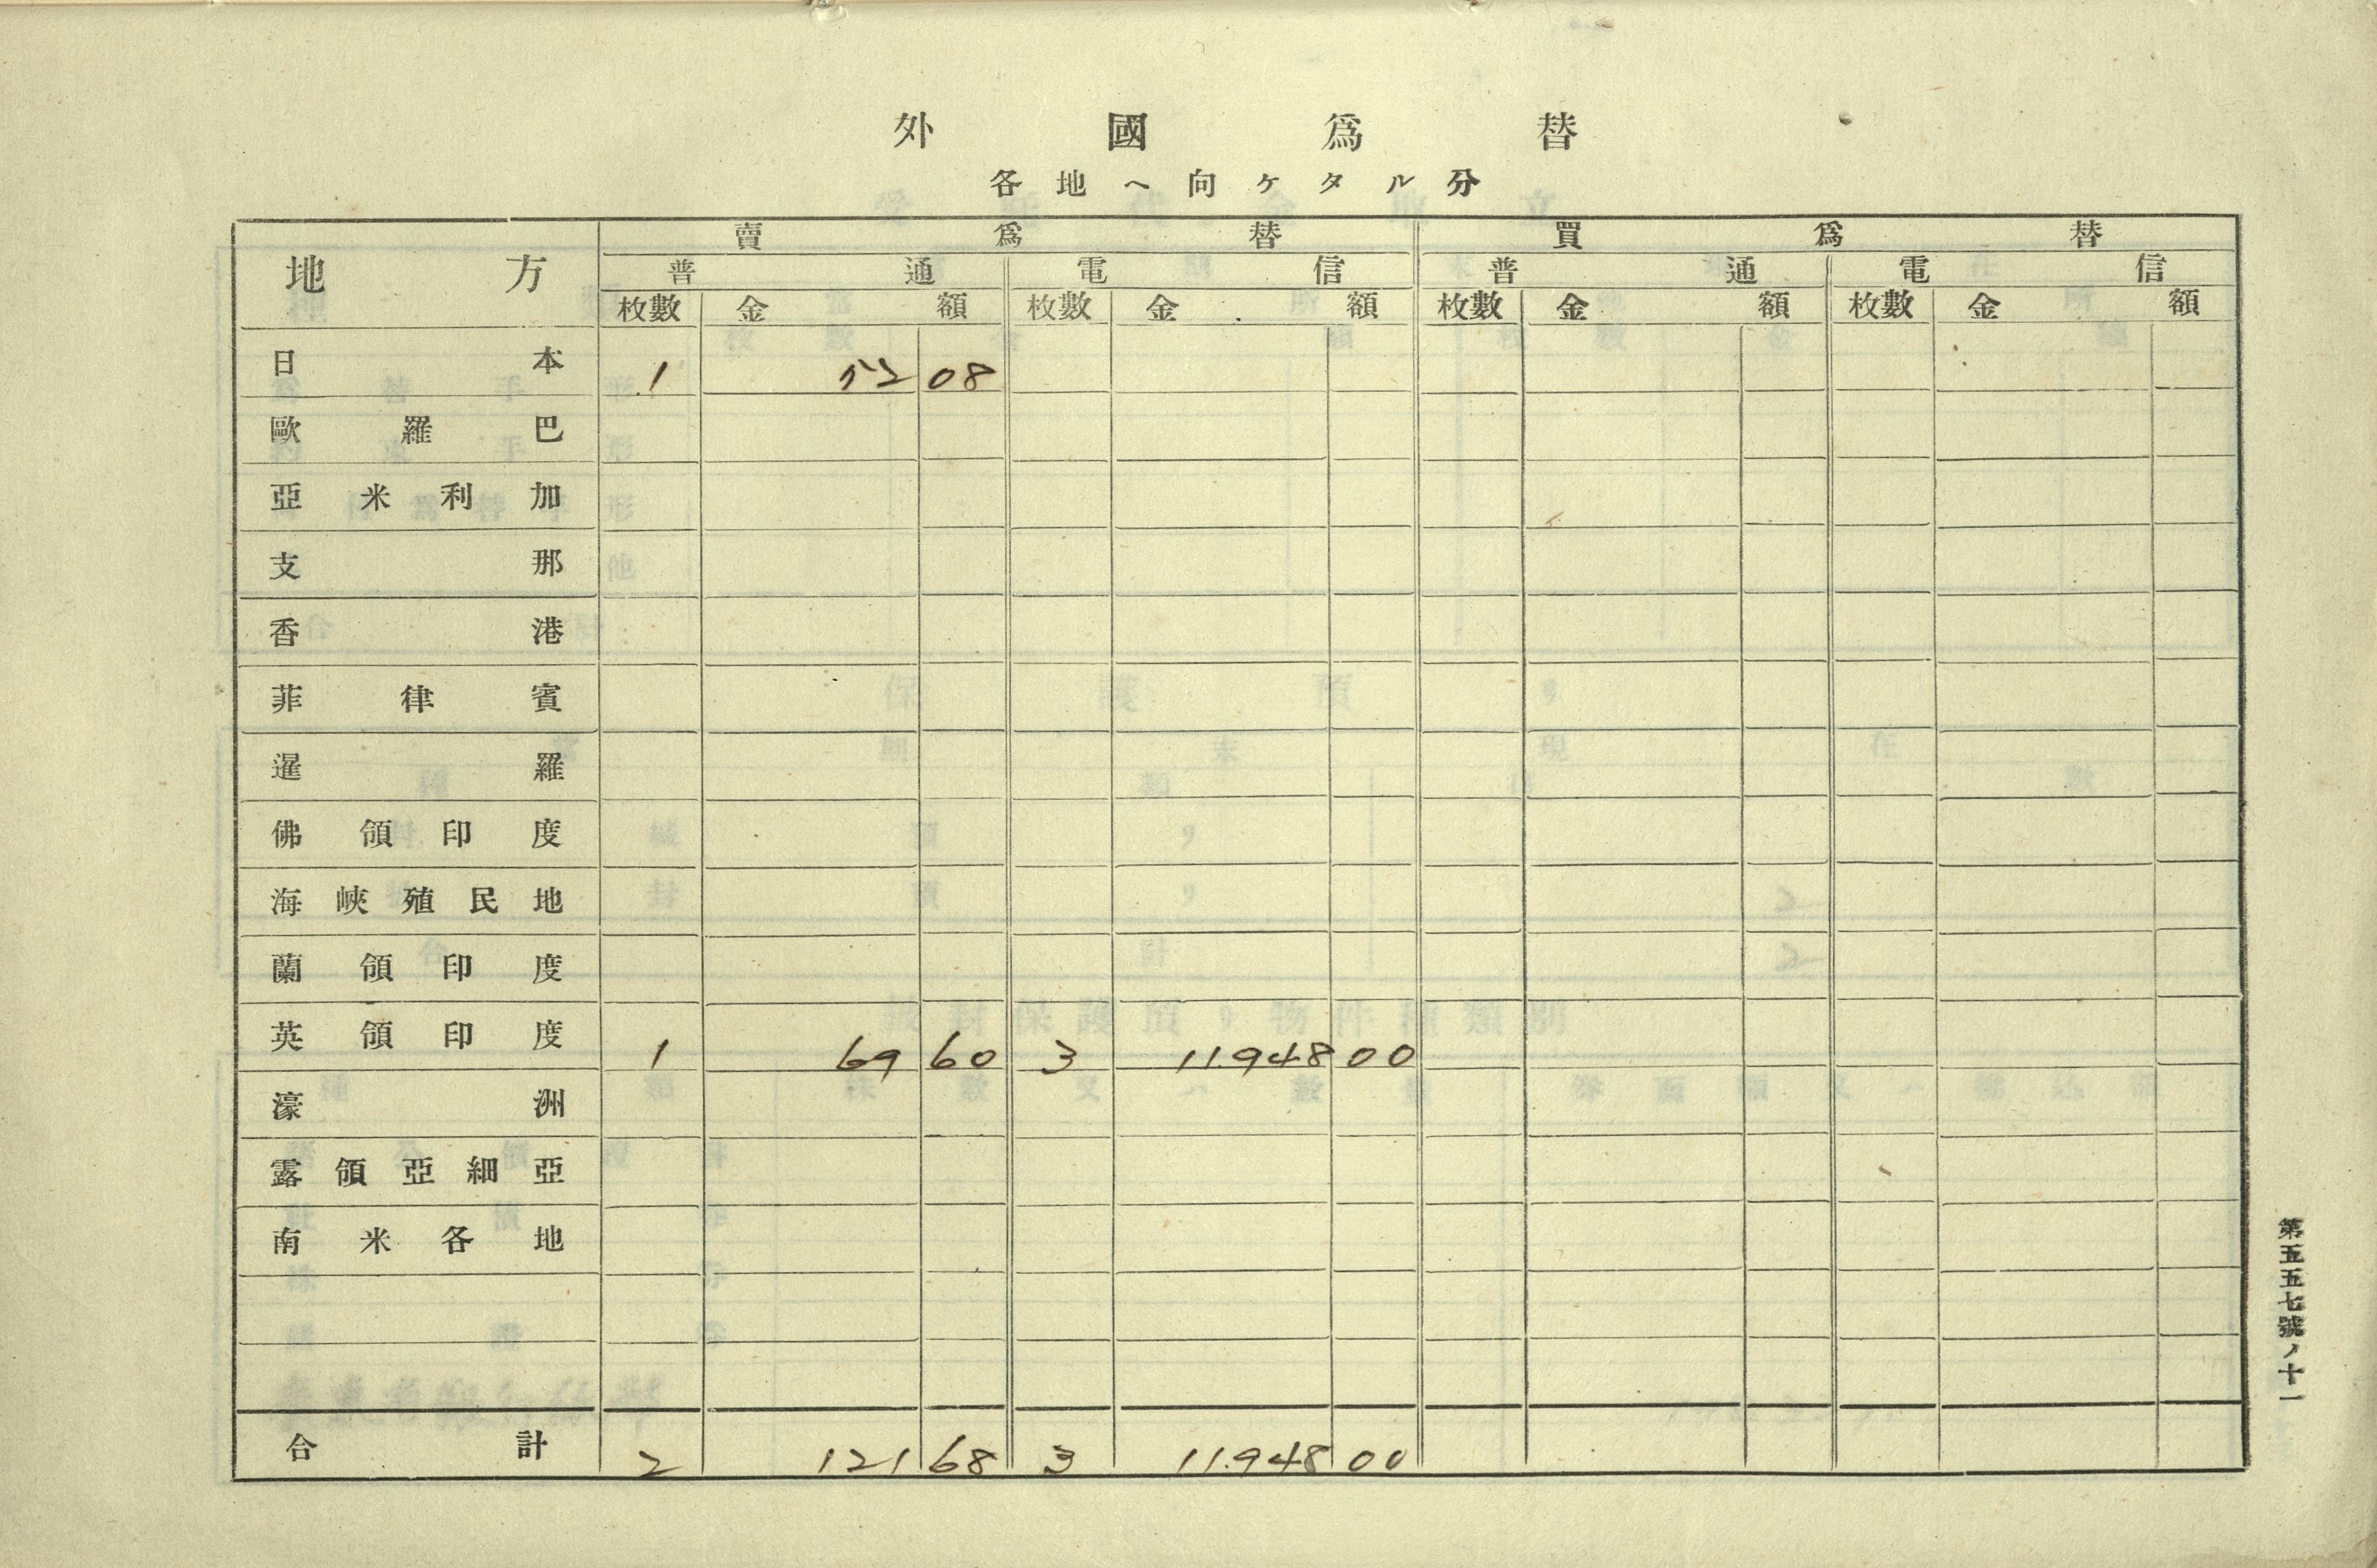 外國爲替
各地ヘ向ケタル分
地方 賣爲替 買爲替
普通 電信 普通 電信
枚數 金額 枚數 金額 枚數 金額 枚數 金額
日本 1 52 08
歐羅巴
亞米利加
支那
香港
菲律賓
暹羅
佛領印度
海峽殖民地
蘭領印度
英領印度 1 69 60 3 11.948 00
濠洲
露領亞細亞
南米各地
合計 2 121 68 3 11.948 00
第五五七號ノ十一